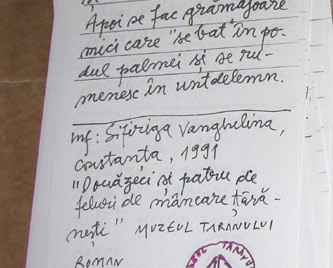 Apoi se fac grămăjoare
mici care "se bat" în po-
dul palmei și se ru-
menesc în untdelemn.
Inf: Sifiriga Vanghelina,
Constanța, 1991
"Douăzeci și patru de
feluri de mâncare țără-
nești" MUZEUL ȚĂRANULUI
ROMAN